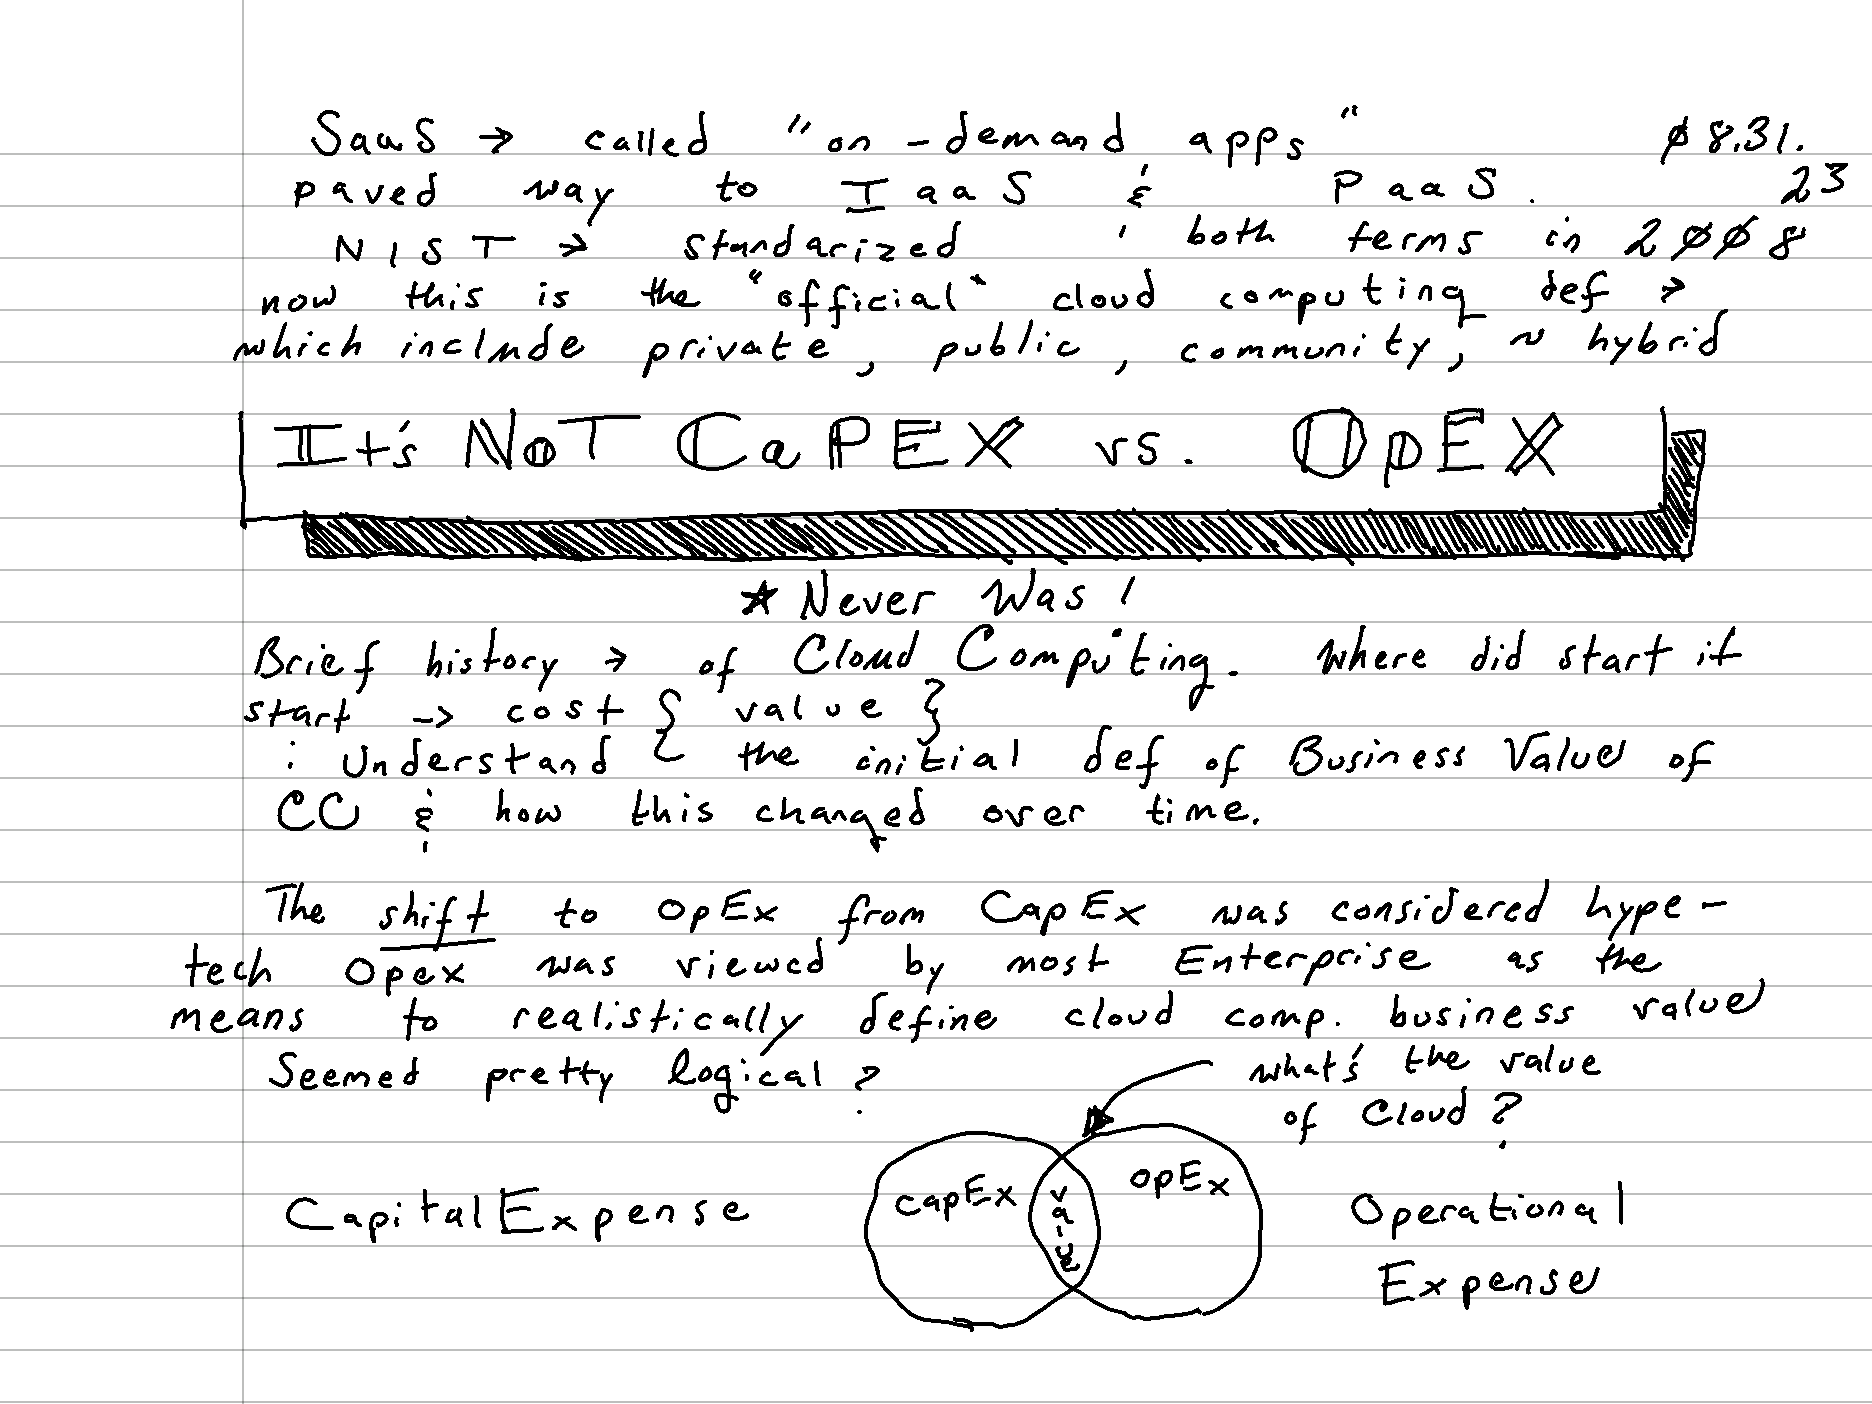 SaaS → called "on-demand apps" ø8.31.
paved way to IaaS & PaaS. 23
NIST → standarized both terms in 2øø8
now this is the "official" cloud computing def →
which include private, public, community, ~ hybrid
It's NoT CaPEX vs. OpEX
★ Never Was!
Brief history → of Cloud Computing. Where did start it
start -> cost { value }
: Understand { the initial def of Business Value of
CC & how this changed over time.
The shift to OpEx from CapEx was considered hype -
tech Opex was viewed by most Enterprise as the
means to realistically define cloud comp. business value
Seemed pretty logical? what's the value
of Cloud?
capEx value opEx
Capital Expense Operational
Expense